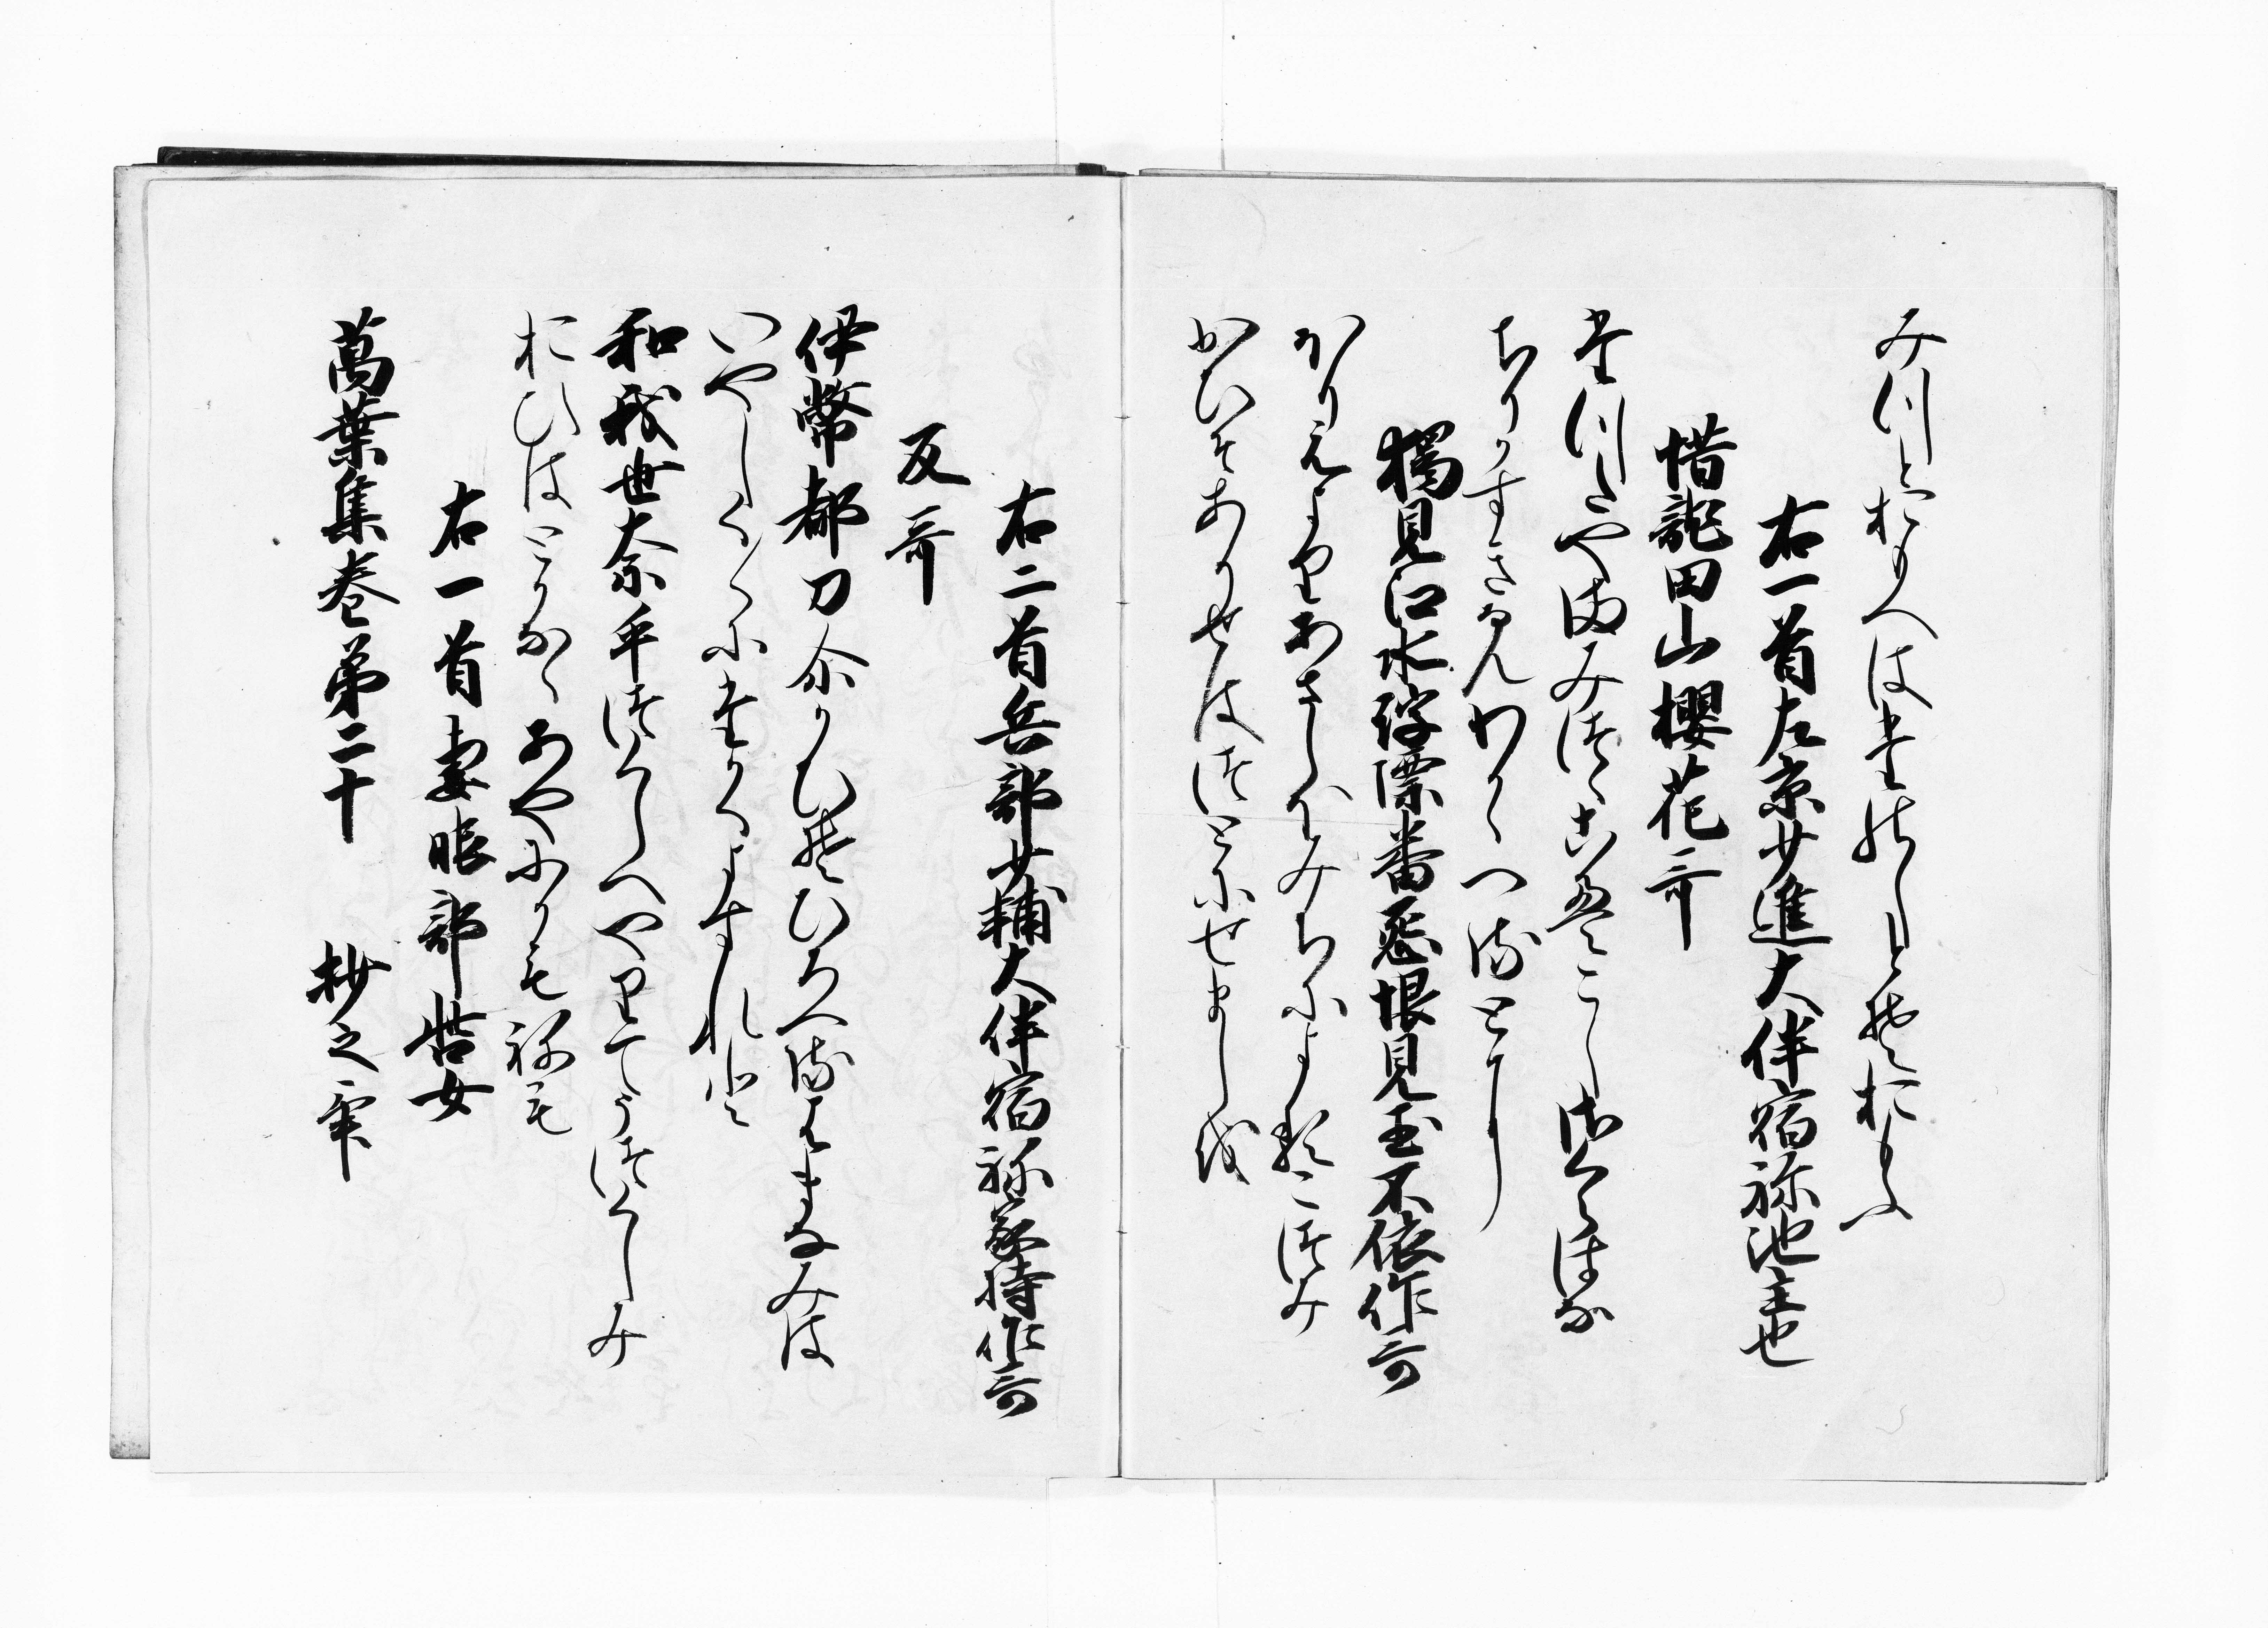 み川とおもへは堂能しとそおもふ
右一首左京少進大伴宿祢池主也
惜龍田山櫻花哥
堂川たやまみつゝこえこしさくらはな
ちりかすきなんわかゝへるとに
獨見江水浮漂番悪恨見玉不依作哥
ほりえよりあさしほみちによるこつみ
かひにありせはつとにせましを
右二首兵部少輔大伴宿祢家持作哥
反哥
伊幣都刀尓かひそひろへるはまなみは
いやしくゝに堂かくよすれと
和我世奈乎つくしへやりてうつくしみ
おひはとかなゝあやにかも祢も
右一首妻服部呰女
萬葉集巻第二十　抄之畢